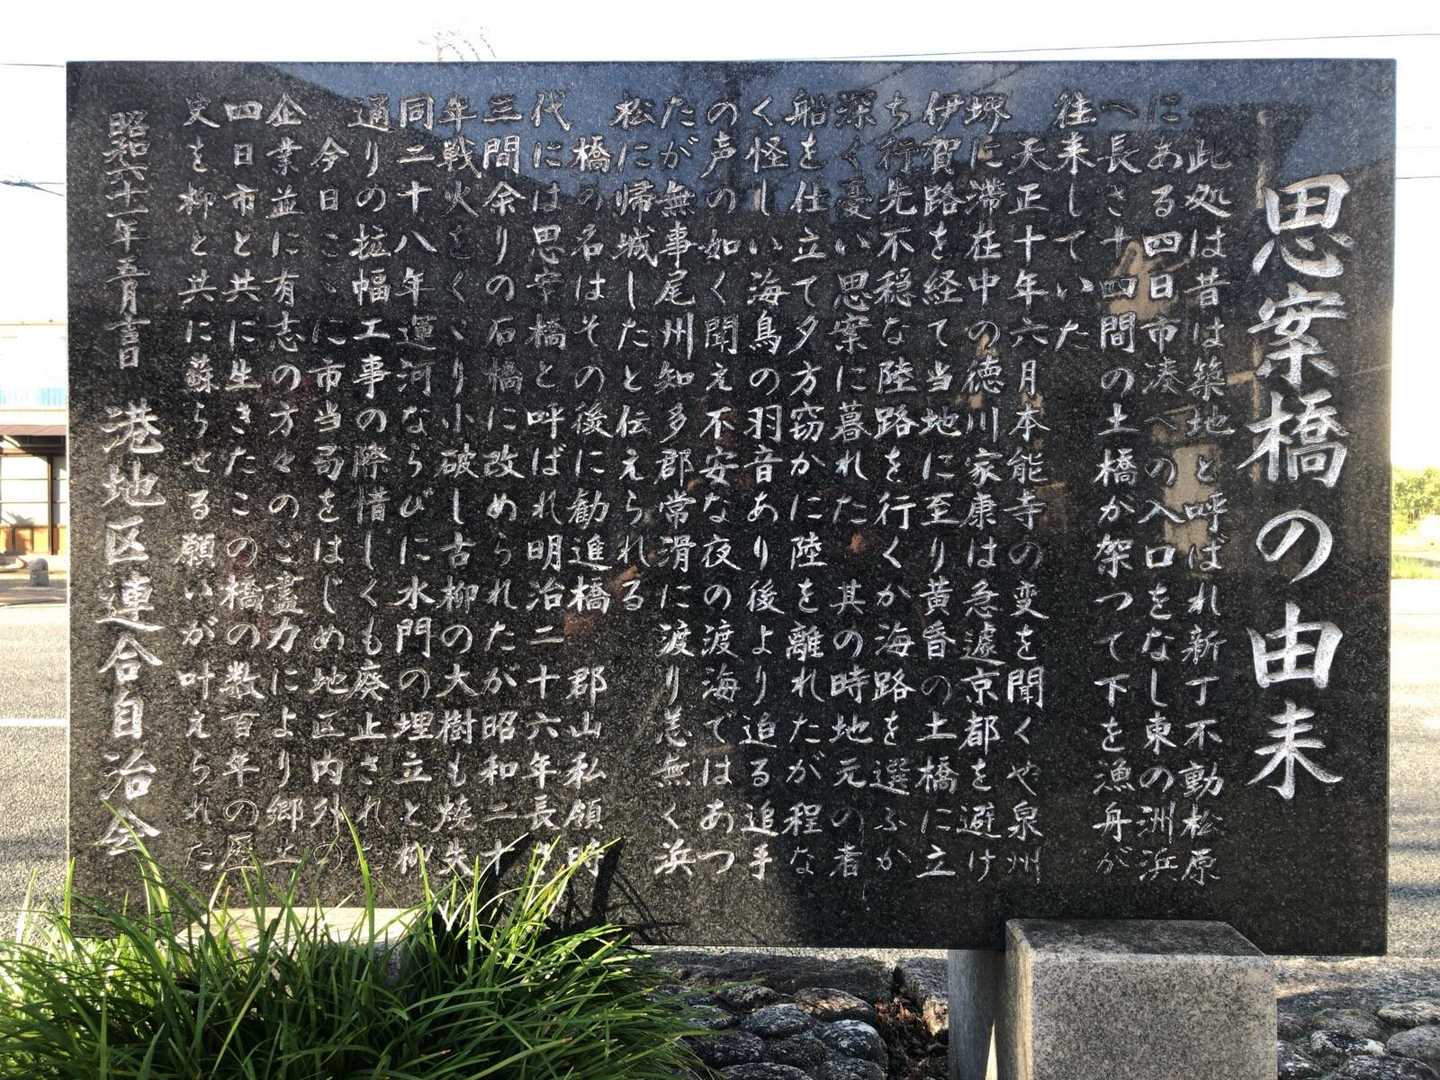 思案橋の由来
此処は昔は築地と呼ばれ新丁不動松原
にある四日市湊への入口をなし東の洲浜
へ長さ十四間の土橋が架つて下を漁舟が
往来していた
天正十年六月本能寺の変を聞くや泉州
堺に滞在中の徳川家康は急遽京都を避け
伊賀路を経て当地に至り黄昏の土橋に立
ち行先不穏な陸路を行くか海路を選ぶか
深く憂い思案に暮れた 其の時地元の者
船を仕立て夕方窃かに陸を離れたが程な
く怪しい海鳥の羽音あり後より追る追手
の声の如く聞え不安な夜の渡海ではあつ
たが無事尾州知多郡常滑に渡り恙無く浜
松に帰城したと伝えられる
橋の名はその後に勧進橋 郡山私領時
代には思案橋と呼ばれ明治二十六年長さ
三間余りの石橋に改められたが昭和二十
年戦火をくゞり小破し古柳の大樹も焼失
同二十八年運河ならびに水門の埋立と柳
通りの拡幅工事の際惜しくも廃止された
今日こゝに市当局をはじめ地区内外の
企業並に有志の方々のご盡力により郷土
四日市と共に生きたこの橋の数百年の歴
史を柳と共に蘇らせる願いが叶えられた
昭和六十一年五月吉日 港地区連合自治会